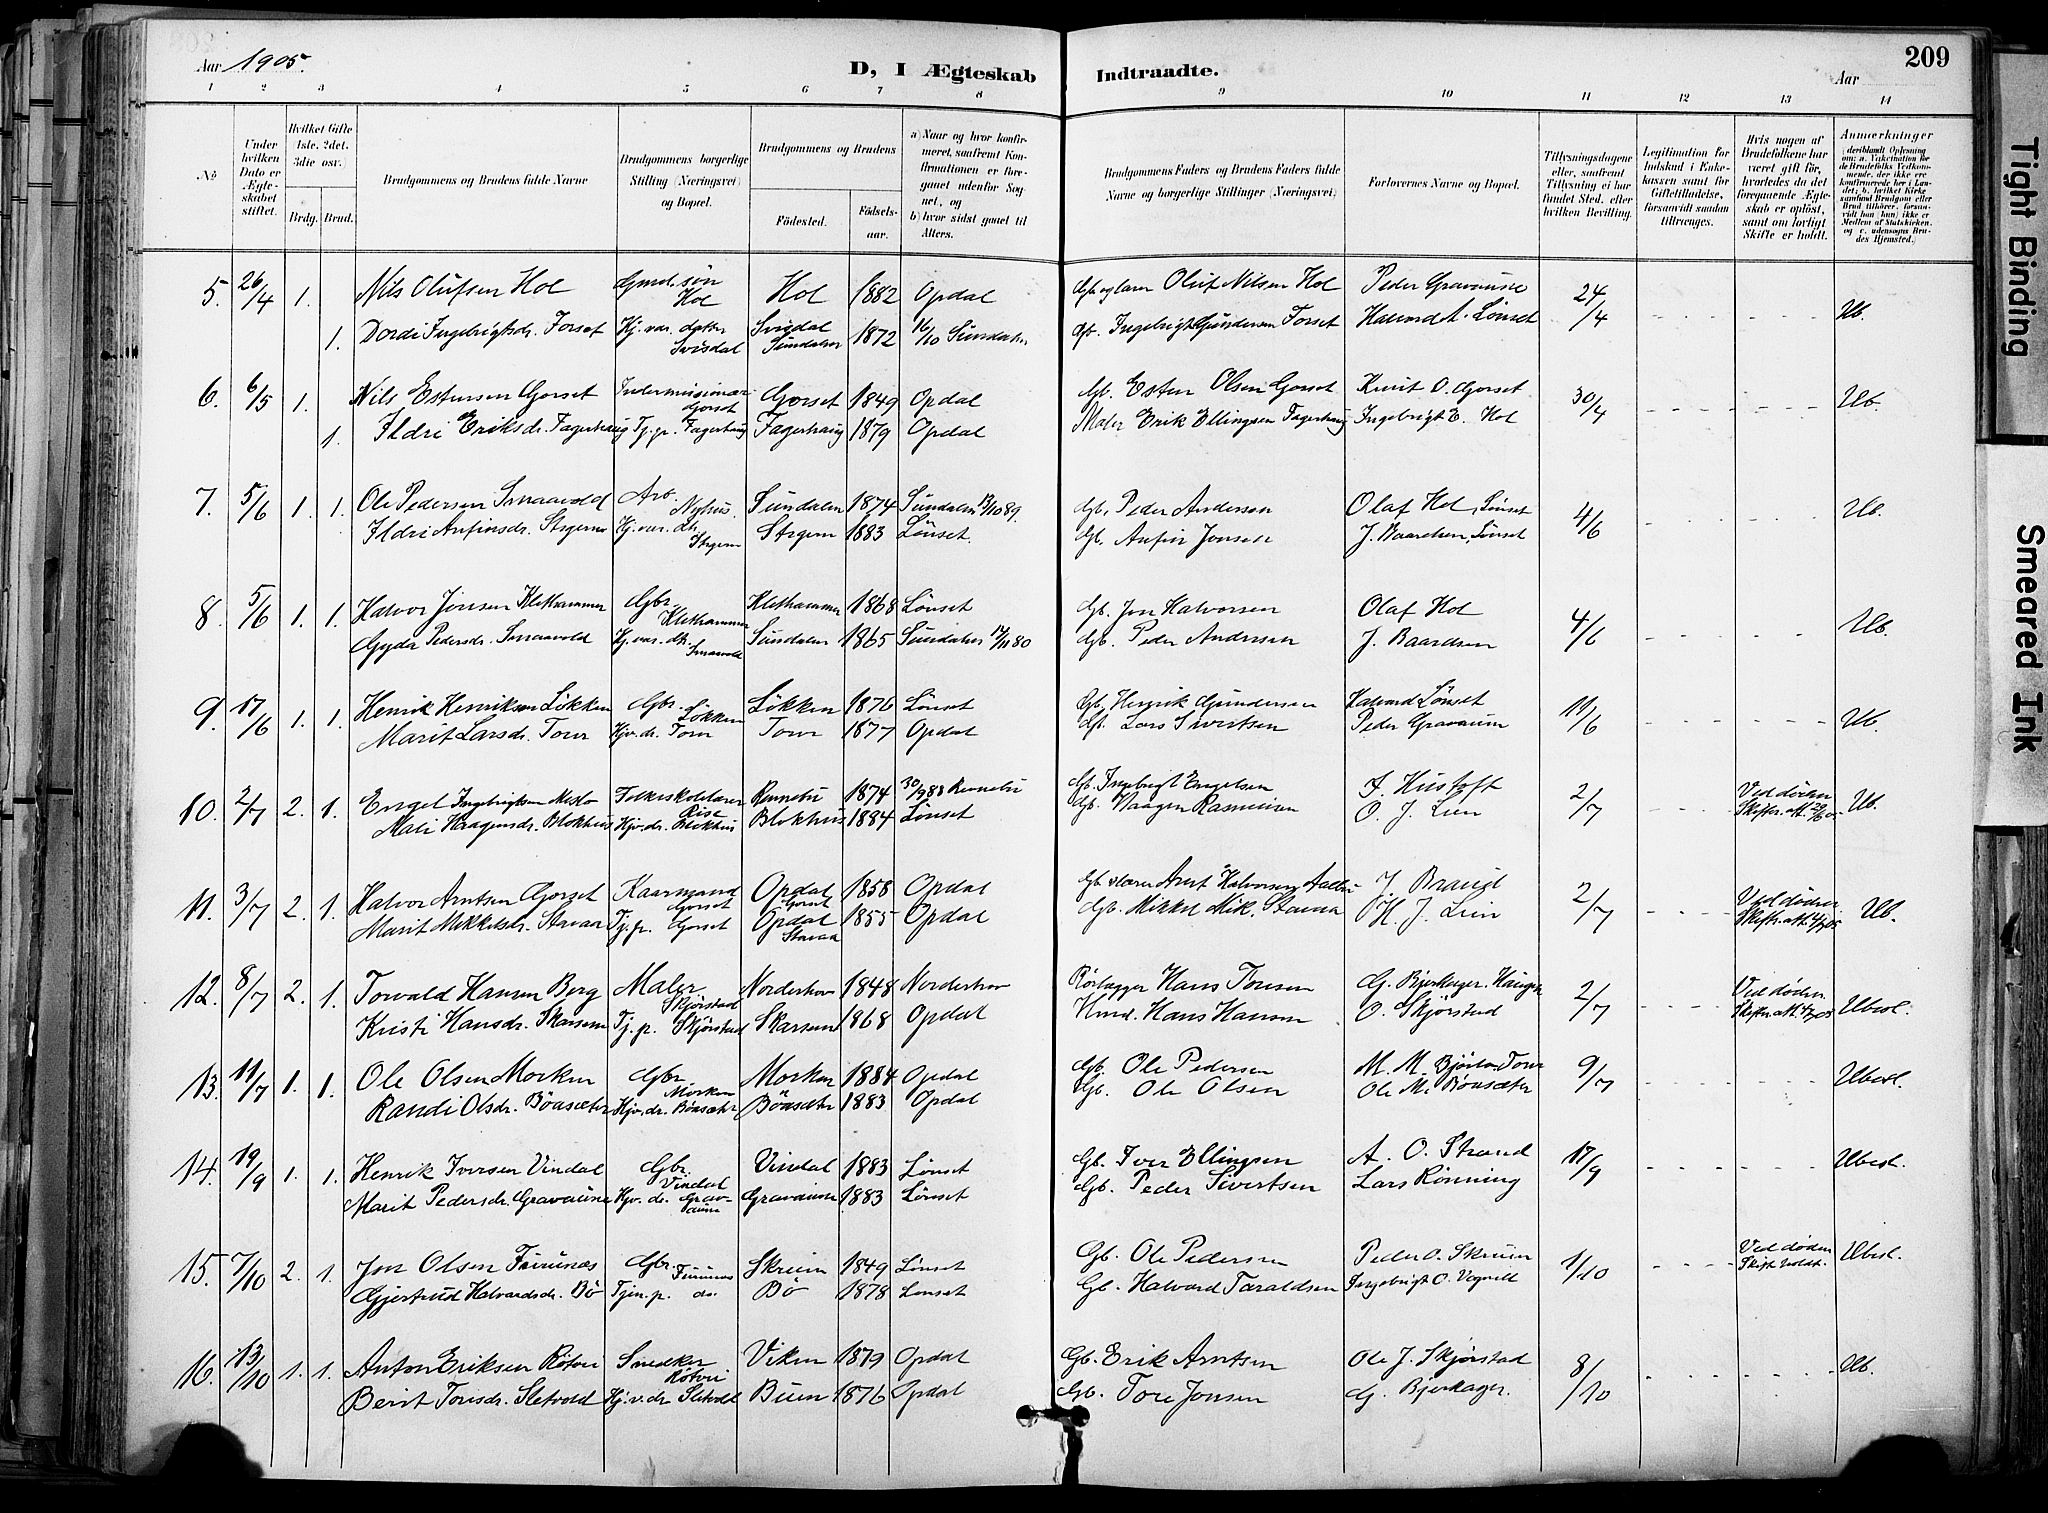 209
Aar 1905.
D, I Ægteskab Indtraadte.
Aar
1 2 3 4 5 6 7 8 9 10 11 12 13 14
No
Under hvilken Dato er Ægteskabet stiftet.
Hvilket Gifte 1ste. 2det. 3die osv.)
Brdg. Brud.
Brudgommens og Brudens fulde Navne
Brudgommens borgerlige Stilling (Næringsvei) og Bopæl.
Brudgommens og Brudens
Födested. Födselsaar.
a) Naar og hvor konfirmeret, saafremt Konfirmationen er foregaaet udenfor Sognet, og b) hvor sidst gaaet til Alters.
Brudgommens Faders og Brudens Faders fulde Navne og borgerlige Stillinger (Næringsvei)
Forlovernes Navne og Bopæl.
Tillysningsdagene eller, saafremt Tillysning ei har fundet Sted, efter hvilken Bevilling.
Legitimation for Indskud i Enkekassen samt for Giftetilladelse, forsaavidt saadan tiltrænges.
Hvis nogen af Brudefolkene har været gift för, hvorledes da det foregaaende Ægteskab er oplöst, samt om lovligt Skifte er holdt.
Anmærkninger
5. 26/4 1. Nils Olufsen Hol Gmd. søn Hol Hol 1882 Opdal Gb og lærer Oluf Nilsen Hol Peder Gravaune 24/4 Ub.
1. Dordi Ingebrigtsdr. Forset Hj. vær. datter Svisdal Svisdal Sundalen 1872 16/10 Sundalen Gb. Ingebrigt Gundersen Forset Halvard A. Lønset
6. 6/5 1. Nils Estensen Gorset Indremissionær Gorset Gorset 1849 Opdal Gb. Esten Olsen Gorset Knut O. Gorset 30/4 Ub.
1. Ildri Eriksdr. Fagerhaug Tj. p. Fagerhaug Fagerhaug 1879 Opdal Maler Erik Ellingsen Fagerhaug Ingebrigt E. Hol
7. 5/6 1. 1. Ole Pedersen Smaavold Arb. Nyhus. Sundalen 1874 Sundalen 13/10 89. Gb. Peder Andersen Olaf Hol, Lønset 4/6 Ub.
Ildri Anfinsdr. Stgem Hj. vær. dtr. Stgem Stgem 1883 Lønset. Gb. Anfin Jonsen J. Baardsen, Lønset
8. 5/6 1. 1. Halvor Jonsen Klethammer Gbr. Klethammer Klethammer 1868 Lønset Gb. Jon Halvorsen Olaf Hol 4/6 Ub.
Gyda Pedersdr. Smaavold Hj. vær. dtr. Smaavold Sundalen 1865 Sundalen 17/11 80 Gb. Peder Andersen J. Baardsen
9. 17/6 1. 1. Henrik Henriksen Løkken Gbr. Løkken Løkken 1876 Lønset Gb. Henrik Gundersen Halvard Lønset 11/6 Ub
Marit Larsdr. Torve Hjv. dr. Torve Torve 1877 Opdal Gb. Lars Sivertsen Peder Gravaune
10. 2/7 2. 1. Engel Ingebrigtsen Meslo Folkeskolelærer Rise Rennebu 1874 30/9 88 Rennebu Gb. Ingebrigt Engelsen J. Hustoft 2/7 Ved døden Skifteratt. 29/6 05 Ub.
Mali Haagensdr. Blokhus Hjv. dr. Blokhus Blokhus 1884 Lønset Gb. Haagen Rasmusen O. J. Lien
11. 3/7 2. 1. Halvor Arntsen Gorset Kaarmand Gorset Opdal Gorset 1858 Opdal Gb. & lærer Arnt Halvorsen Aalbu J. Braud 2/7 Ved døden Skifteratt. 4/7 05 Ub.
Marit Mikkelsdr. Stavaa Tj. p. Gorset Opdal Stavaa 1855 Opdal Gb. Mikkel Mik. Stavaa H. J. Lien
12. 8/7 2. 1. Torvald Hansen Berg Maler Skjørstad Norderhov 1848 Norderhov Rørlægger Hans Tonsen G. Bjerkager, Haugen 2/7 Ved døden Skifteratt. 4/7 05 Ubesl.
Kristi Hansdr. Skarsem Tj. p. Skjørstad Skarsem 1868 Opdal Hmd. Hans Hansen O. Skjørstad
13. 11/7 1. 1. Ole Olsen Morken Gbr Morken Morken 1884 Opdal Gb. Ole Pedersen M. M. Bjørlo, Torve 9/7 Ubesl.
Randi Olsdr. Bøasæter Hjv. dr. Bøasæter Bøasæter 1883 Opdal Gb. Ole Olsen Ole M. Bøasæter
14. 19/9 1. 1. Henrik Iversen Vindal Gbr. Vindal Vindal 1883 Lønset Gb. Iver Ellingsen A. O. Strand 17/9 Ubesl.
Marit Pedersdr. Gravaune Hjv. dr. Gravaune Gravaune 1883 Lønset Gb. Peder Sivertsen Lars Rønning
15. 7/10 2. 1. Jon Olsen Furunes Gbr. Furunes Skruen 1849 Lønset Gb. Ole Pedersen Peder O. Skruen 1/10 Ved døden Skift. holdt. Ubesl.
Gjertrud Halvardsdr. Bø Tjen. p. ds. Bø 1878 Lønset Gb. Halvard Taraldsen Ingebrigt O. Vognill
16. 13/10 1. 1. Anton Eriksen Røtvei Snedker Røtvei Viken 1879 Opdal Gb. Erik Arntsen Ole J. Skjørstad 8/10 Ub.
Berit Toresdr. Sletvold Hj. v. dr Sletvold Buen 1876 Opdal Gb. Tore Jonsen G. Bjerkager.
Tight Binding
Smeared Ink